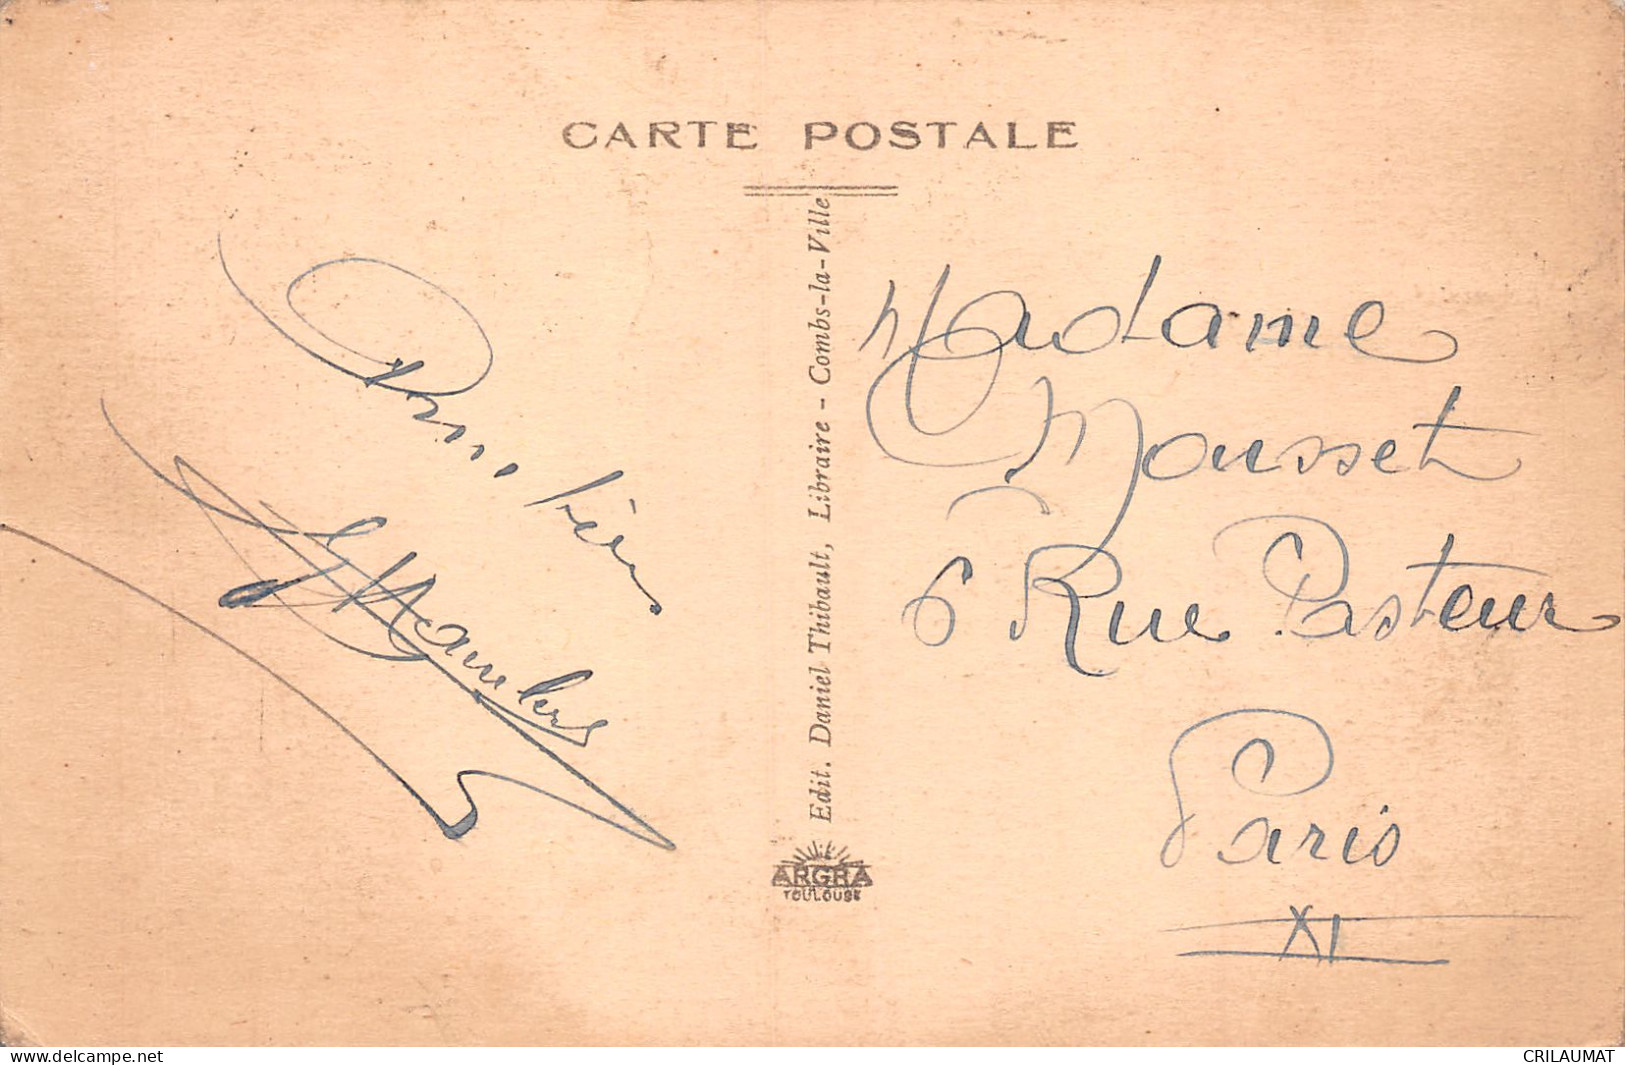 CARTE POSTALE
Edit. Daniel Thibault, Libraire - Combs-la-Ville
ARGRA
TOULOUSE
Madame
Mousset
6 Rue Pasteur
Paris
XI
delcampe.net
CRILAUMAT